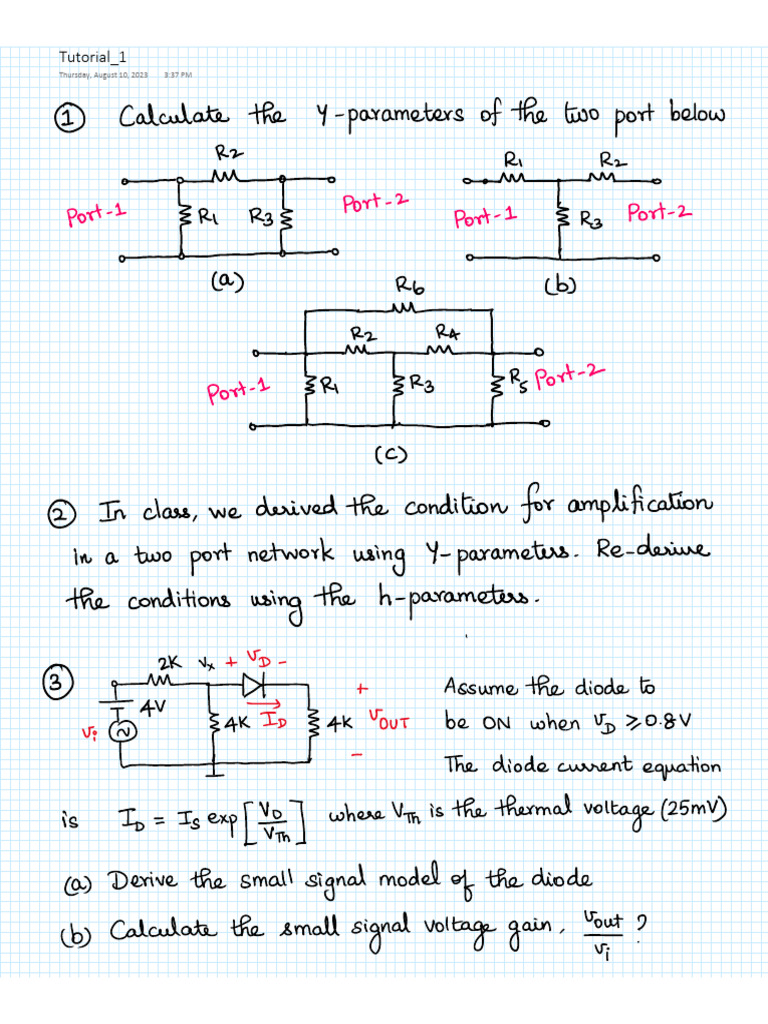 Tutorial_1
Thursday, August 10, 2023 3:37 PM
① Calculate the Y-parameters of the two port below
R2
Port-1
R1
R3
Port-2
(a)
R1
R2
Port-1
R3
Port-2
(b)
R6
R2
R4
Port-1
R1
R3
R5
Port-2
(c)
② In class, we derived the condition for amplification
in a two port network using Y-parameters. Re-derive
the conditions using the h-parameters.
③
2K Vx + VD -
4V
Vi
4K
ID
4K
+
VOUT
-
Assume the diode to
be ON when VD ≥ 0.8V
The diode current equation
is ID = IS exp[VD/VTh] where VTh is the thermal voltage (25mV)
(a) Derive the small signal model of the diode
(b) Calculate the small signal voltage gain, vout/vi ?